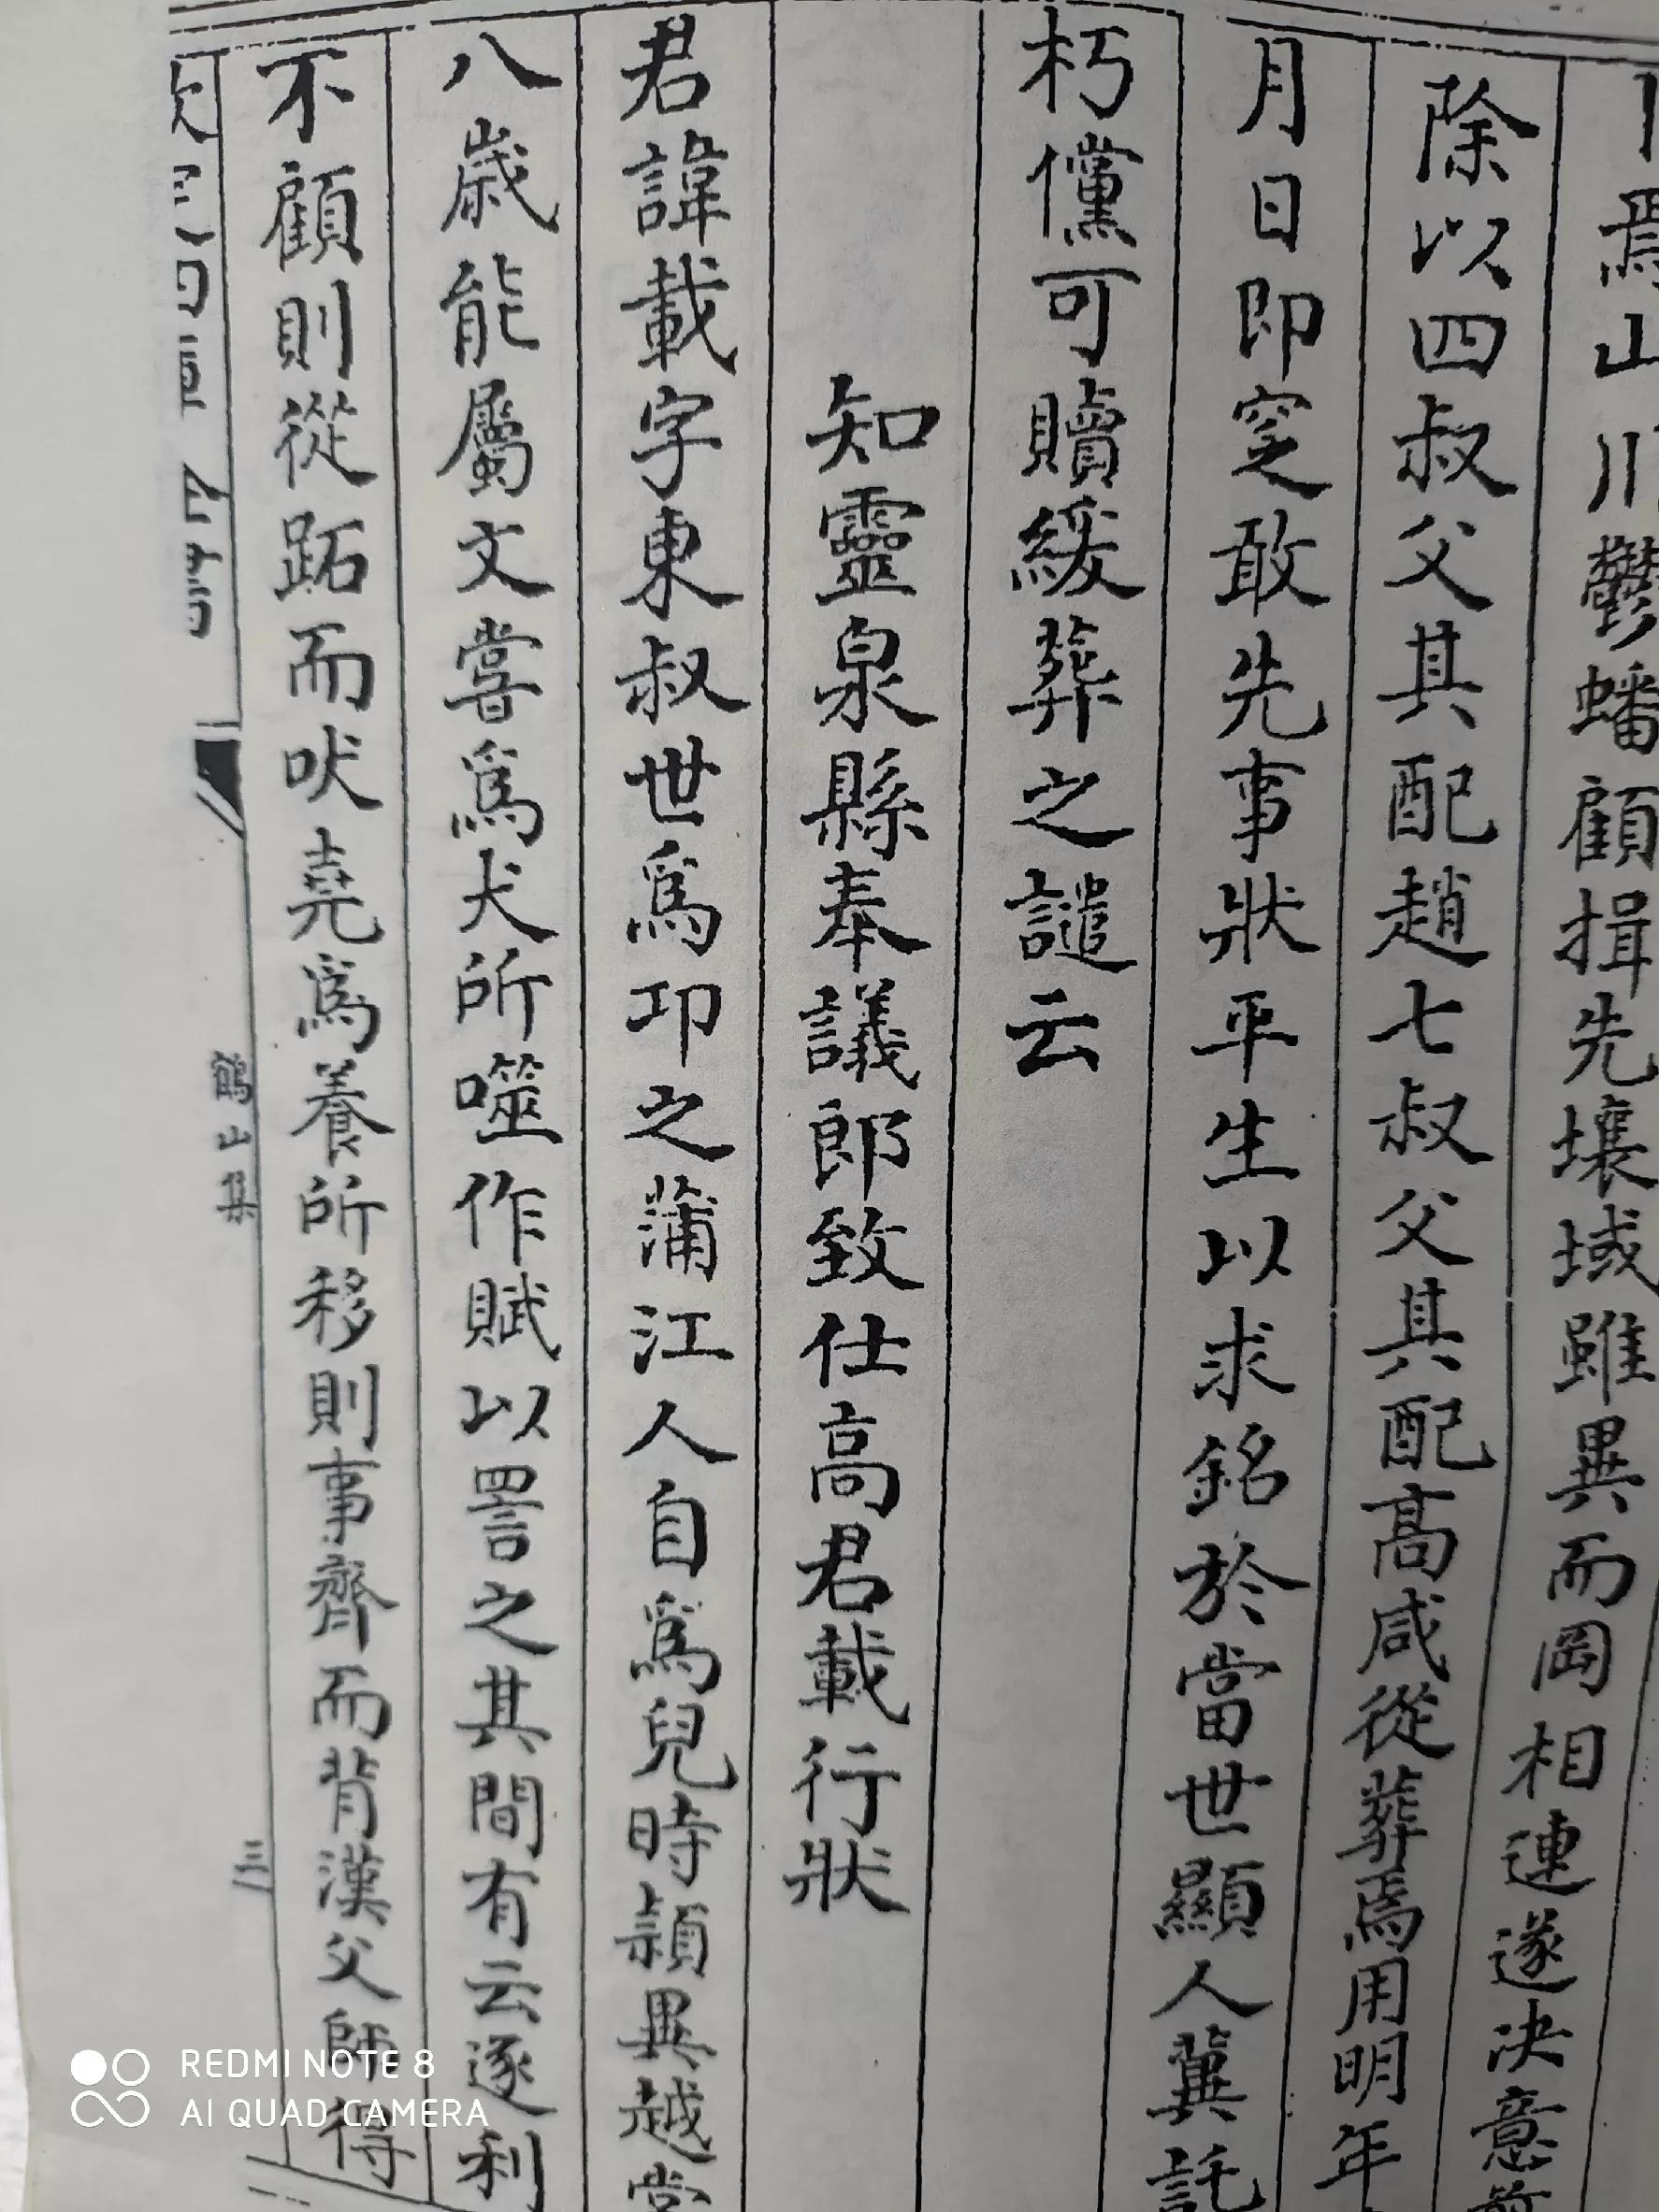 焉山川鬱蟠顧揖先壤域雖異而岡相連遂決意
除以四叔父其配趙七叔父其配高咸從葬焉用明年
月日即窆敢先事狀平生以求銘於當世顯人冀託
朽儻可贖緩葬之譴云
知靈泉縣奉議郎致仕高君載行狀
君諱載字東叔世爲邛之蒲江人自爲兒時穎異越常
八歲能屬文嘗爲犬所噬作賦以詈之其間有云逐利
不顧則從跖而吠堯爲養所移則事齊而背漢父師得
鶴山集
三
REDMI NOTE 8
AI QUAD CAMERA